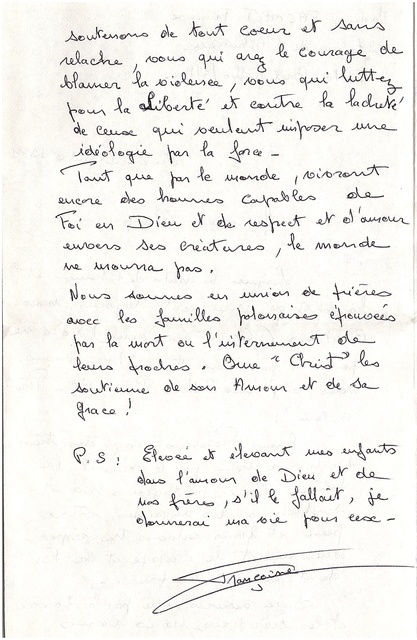 soutenons de tout coeur et sans
relache, vous qui avez le courage de
blamer la violence, vous qui luttez
pour la liberté et contre la lacheté
de ceux qui veulent imposer une
idéologie par la force -
Tant que par le monde, vivront
encore des hommes capables de
Foi en Dieu et de respect et d'amour
envers ses créatures, le monde
ne mourra pas.
Nous sommes en union de prières
avec les familles polonaises éprouvées
par la mort ou l'internement de
leurs proches. Que "Christ" les
soutienne de son Amour et de sa
grace!
P.S : Elevée et élevant mes enfants
dans l'amour de Dieu et de
nos frères, s'il le fallait, je
donnerai ma vie pour eux -
Françoise